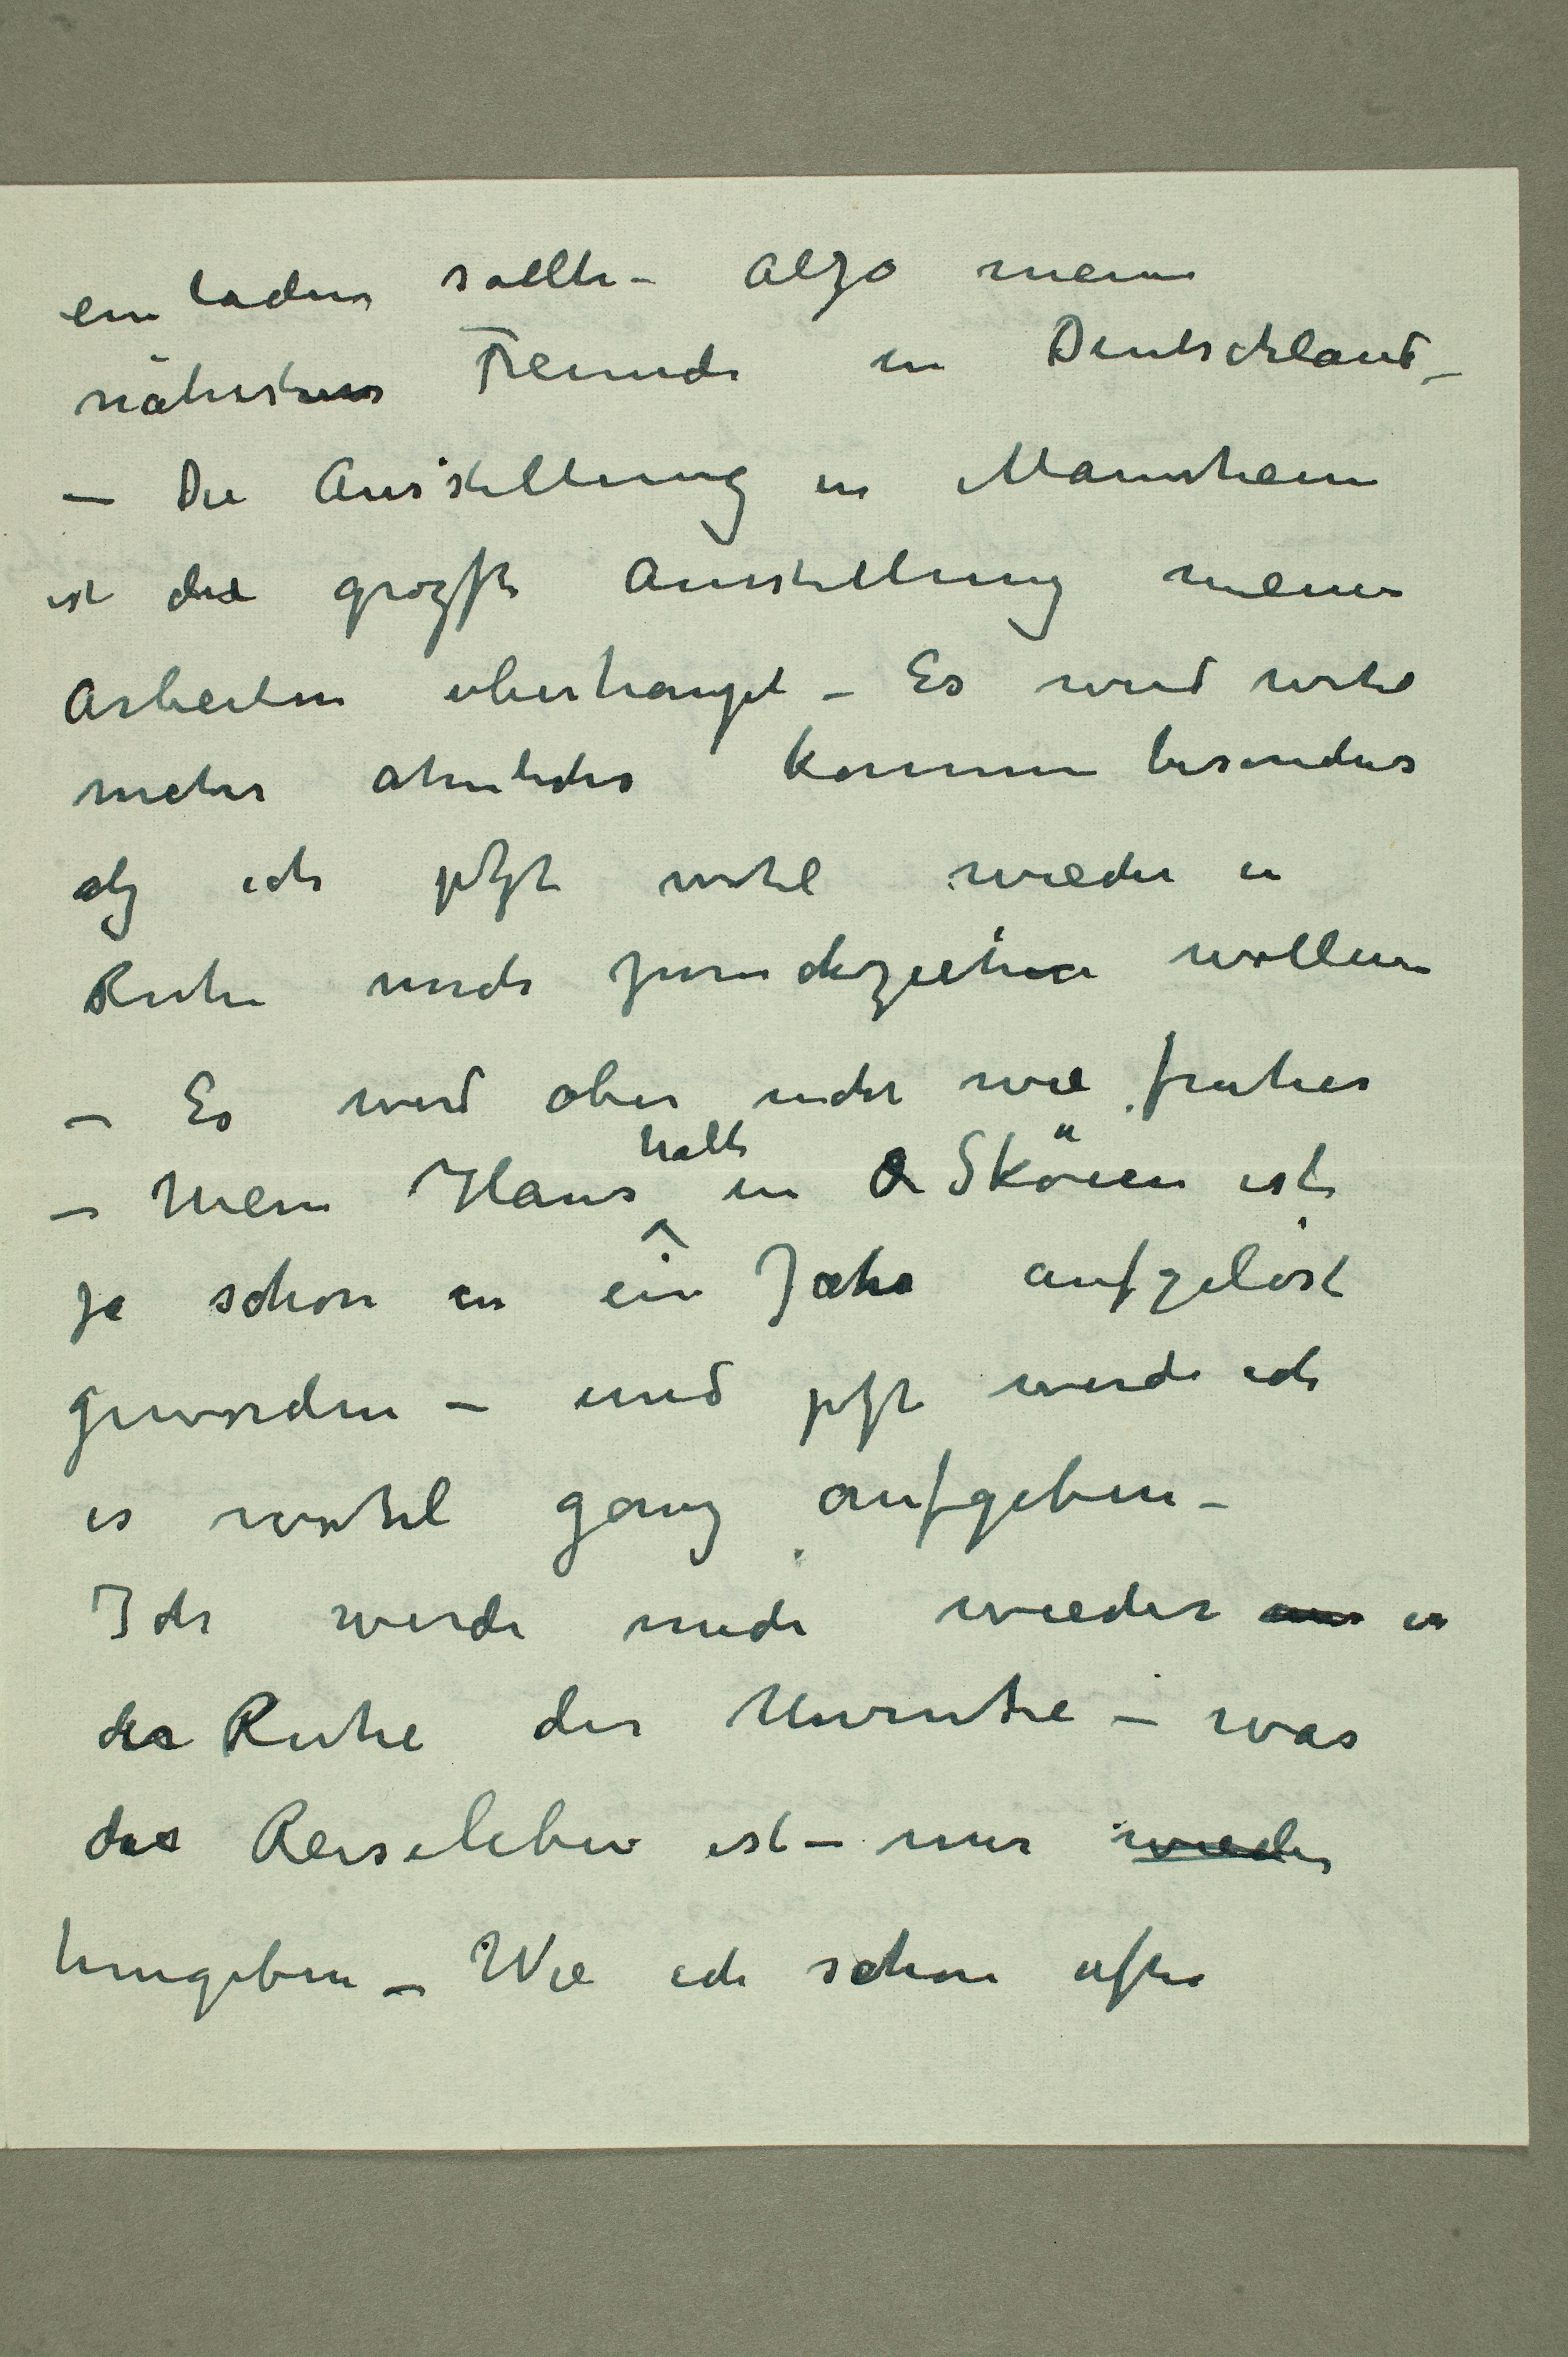 einladen sollte – alzo meine
nähesten Freunde in Deutschland –
– Die Ausstellung in Mannheim
ist die grozste Ausstellung meiner
Arbeiten uberhaupt – Es wird wohl
mehr ahnliches kommen besonders
alz ich jetzt wohl wieder in
Ruhe mich zuruckziehen wollen
– Es wird aber nicht wie fruher
– Mein Haushalt in Sköien ist
ja schon in ein Jahr aufgelöst
geworden – und jetzt werde ich
es wohl ganz aufgeben –
Ich werde mich wieder in
der Ruhe der Unruhe – was
das Reiseleben ist – mir wieder
hingeben – Wie ich schon ofter